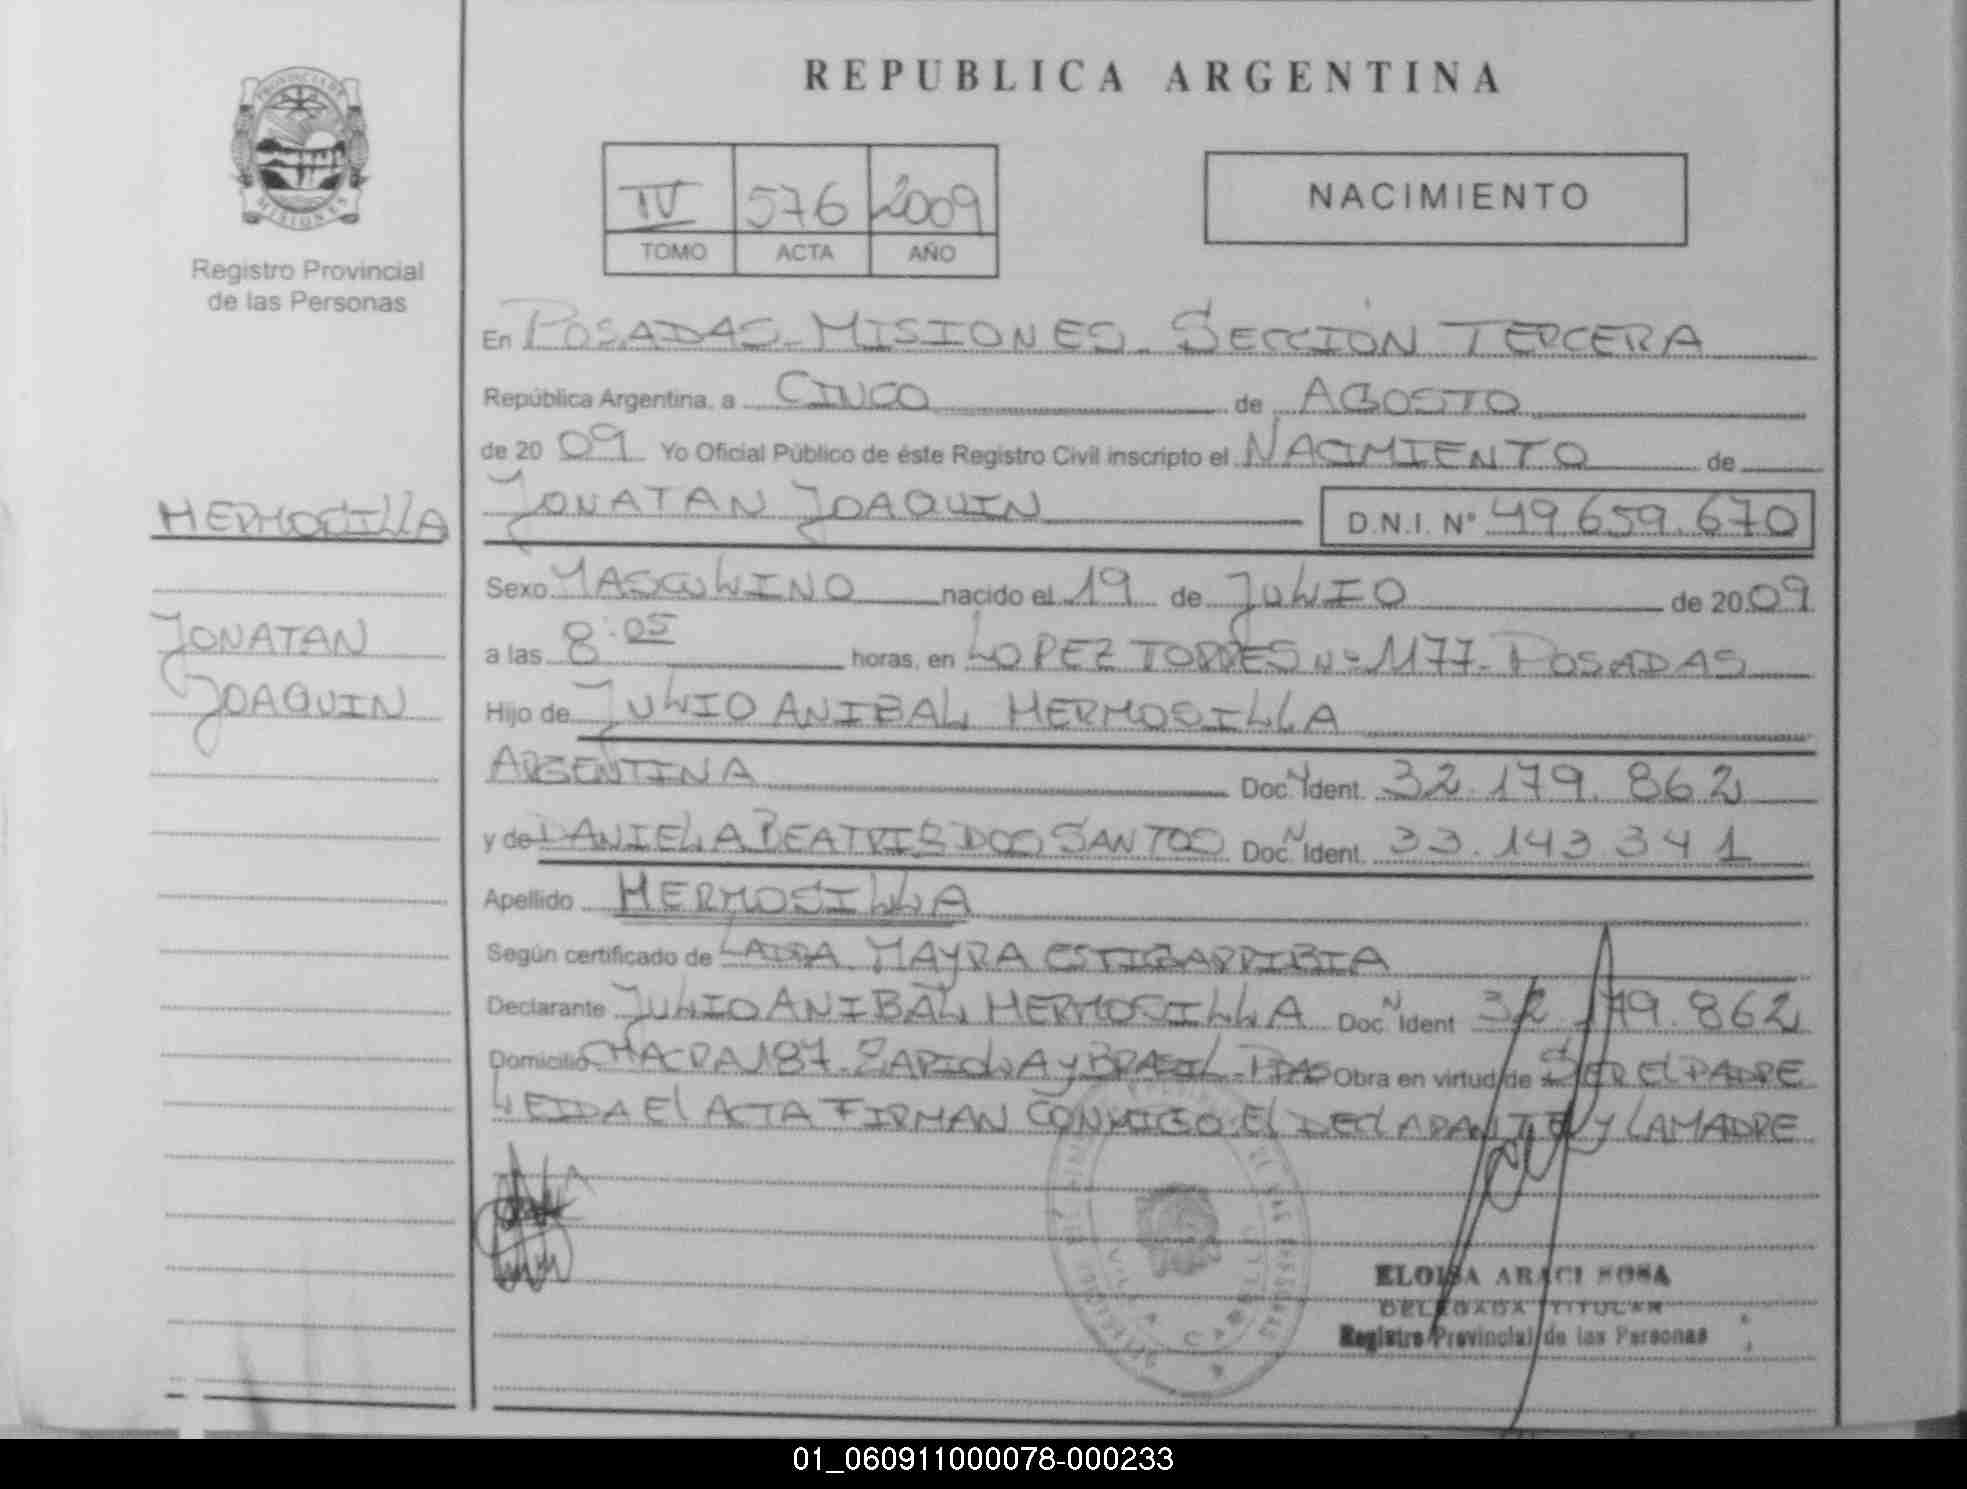 PROVINCIA DE
MISIONES
Registro Provincial
de las Personas
REPUBLICA ARGENTINA
IV 576 2009
TOMO ACTA AÑO
NACIMIENTO
En POSADAS - MISIONES - SECCIÓN TERCERA
República Argentina, a CINCO de AGOSTO
de 2009 Yo Oficial Público de éste Registro Civil inscripto el NACIMIENTO de
JONATAN JOAQUIN D.N.I. Nº 49.659.670
HERMOSILLA
JONATAN
JOAQUIN
Sexo MASCULINO nacido el 19 de JULIO de 2009
a las 8:05 horas, en LOPEZ TORRES Nº 1177 - POSADAS
Hijo de JULIO ANIBAL HERMOSILLA
ARGENTINA Doc. N Ident. 32.179.862
y de DANIELA BEATRIS DOS SANTOS Doc. N Ident. 33.143.341
Apellido HERMOSILLA
Según certificado de LAURA MAYRA ESTIGARRIBIA
Declarante JULIO ANIBAL HERMOSILLA Doc. N Ident 32.179.862
Domicilio CHACRA 187 - ZAPIOLA y BRASIL - PDAS Obra en virtud de SER El PADRE
LEIDA El ACTA FIRMAN CONMIGO El DEClARANTE y LA MADRE
VILLA CABELLO
ELOISA ARACI SOSA
DELEGADA TITULAR
Registro Provincial de las Personas
01_060911000078-000233